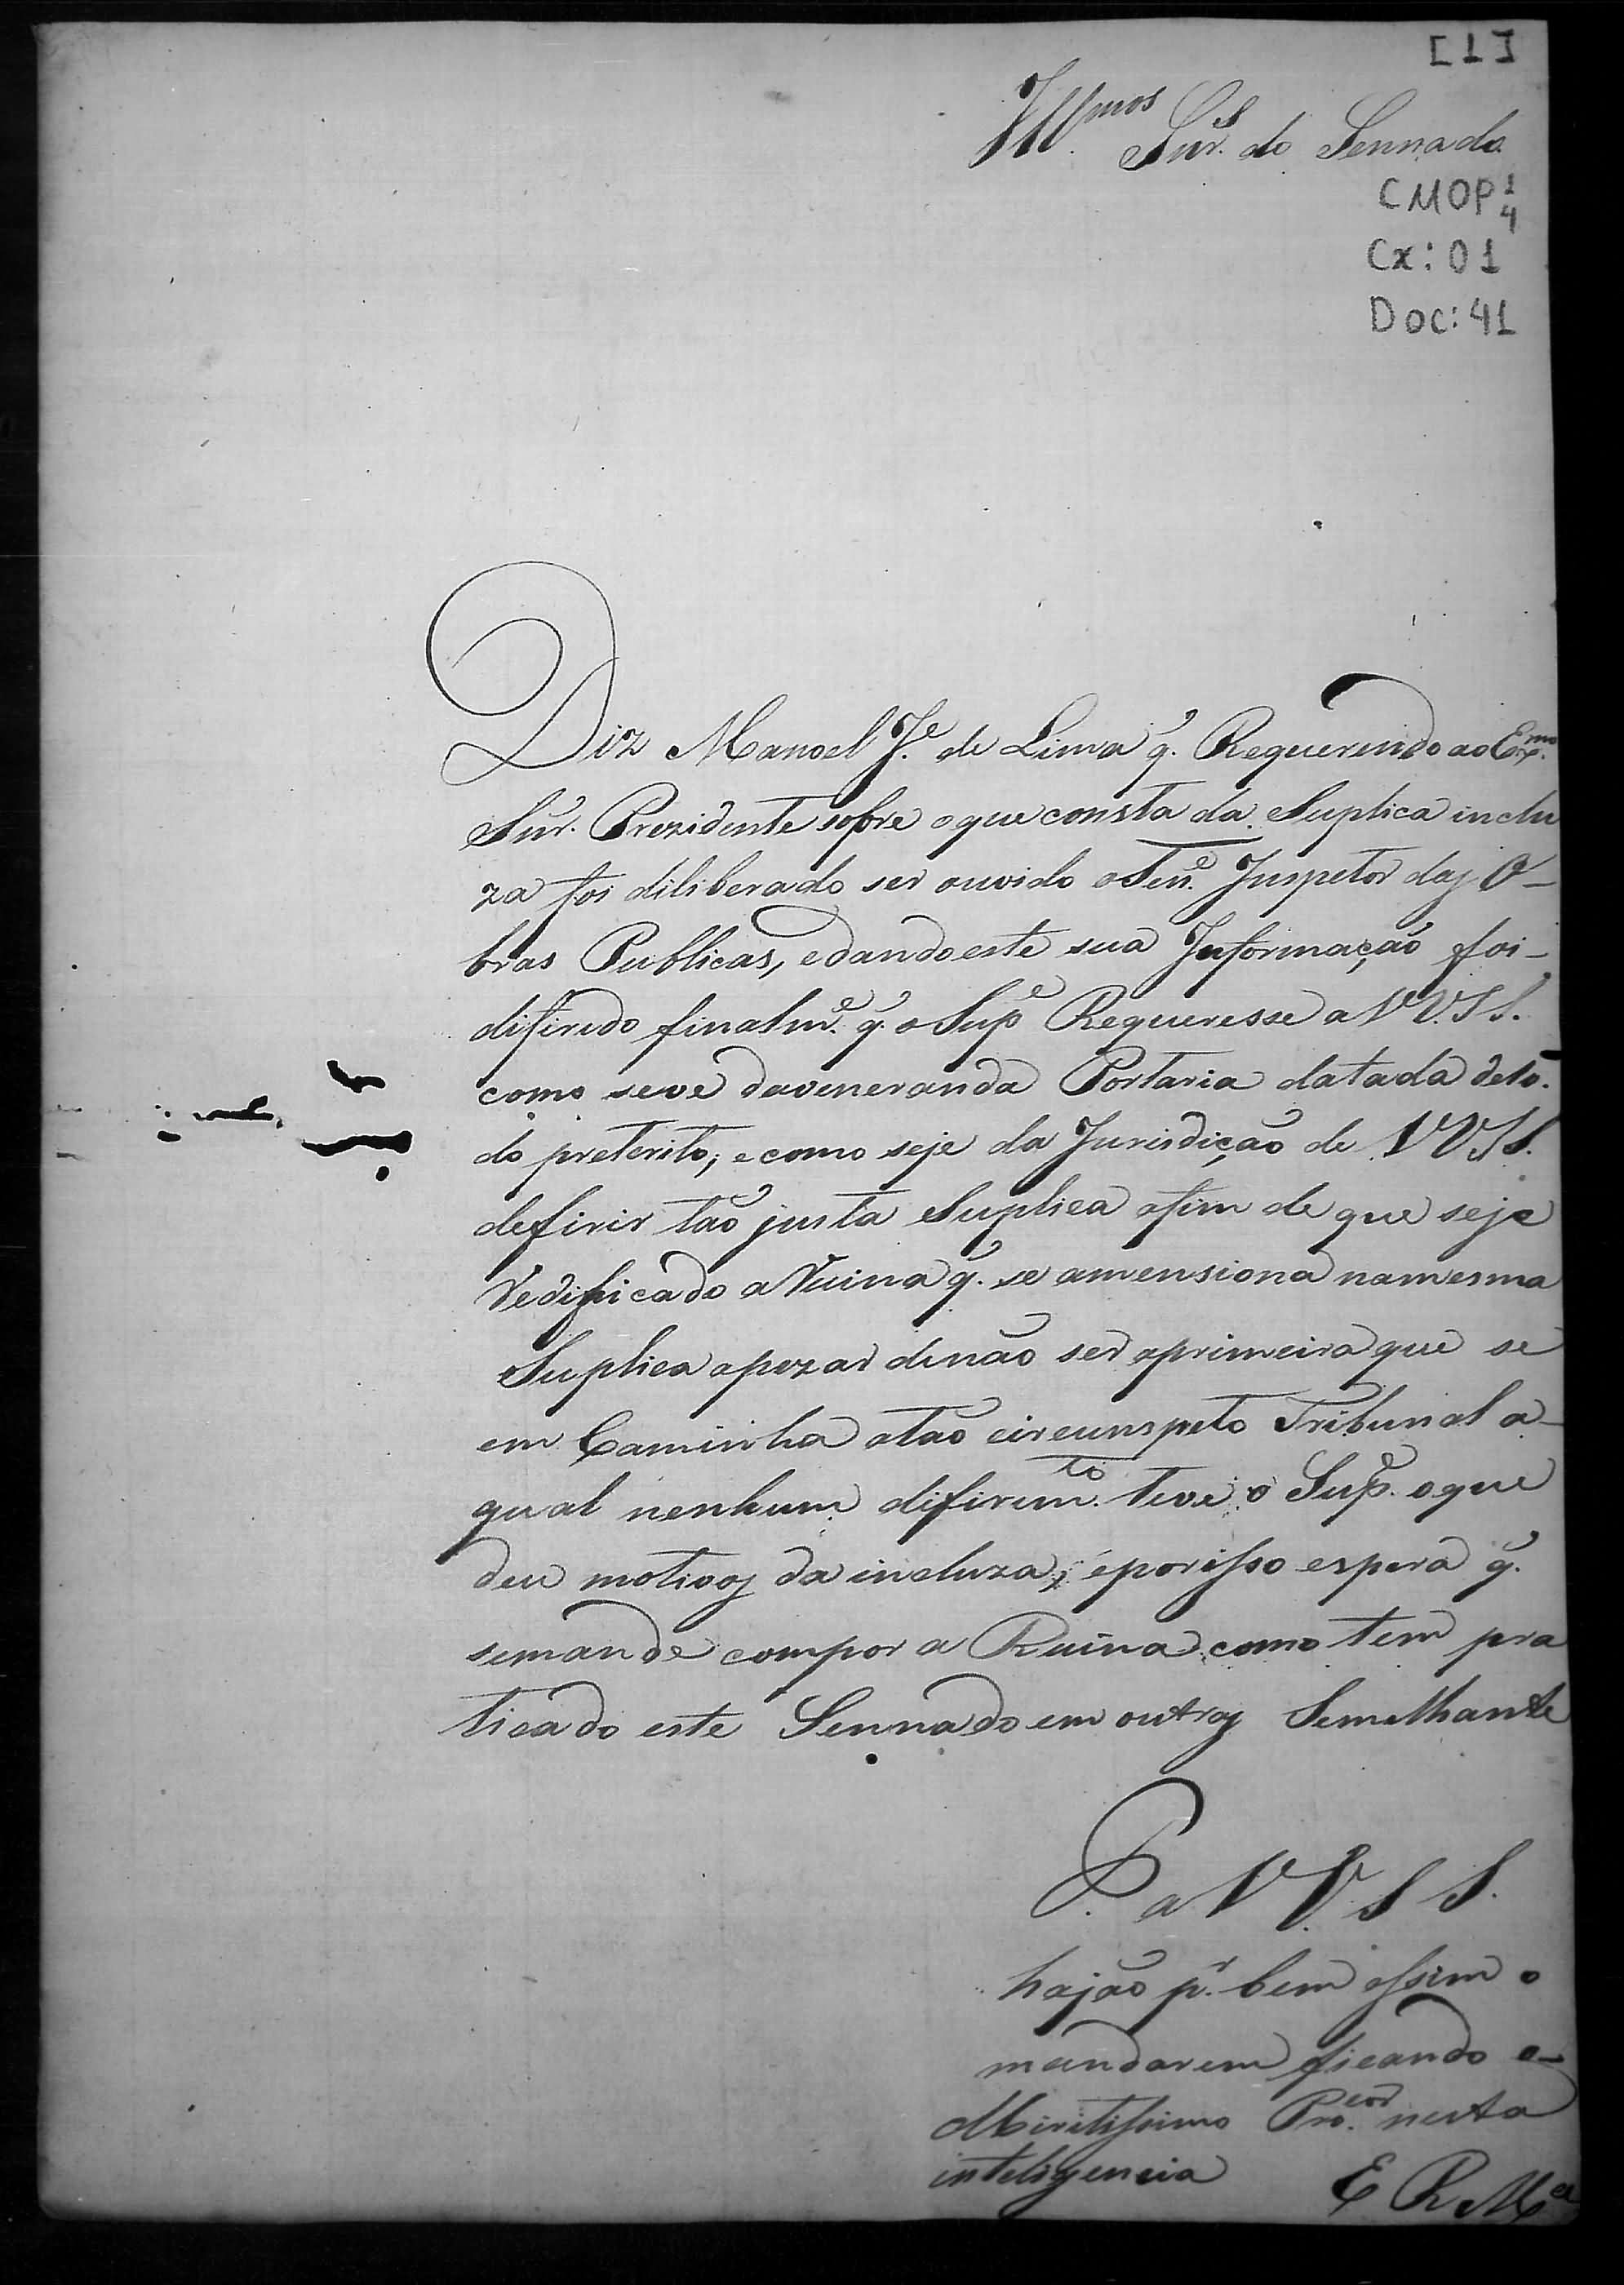 [1]
Ill.mos Snr.s do Sennado
CMOP 1/4
Cx: 01
Doc: 41
Diz Manoel J.e de Lima q. Requerendo ao Ex.mo
Snr. Prezidente sobre o que consta da Suplica inclu
za foi diliberado ser ouvido o Ten.e Inspetor das O-
bras Publicas, edandoeste sua Informação foi-
difirido finalm.e q. o Sup.e Requeresse a VV.SS.
como seve daveneranda Portaria datada de
do preterito; ecomo seje da Jurisdição de VVSS.
defirir tão justa Suplica afim de que seje
redificado a ruina q. se amensiona namesma
Suplica apezar denão ser aprimeira que se
em Caminha atão circunspeto Tribunal a-
qual nenhum difirim.to teve o Sup.e oque
deu motivos da incluza; eporisso espera q.
semande compor a Ruina como tem pra
ticado este Sennado em outras Semelhante
P. a VV.SS.
hajão p.r bem assim o
mandarem ficando o-
Miritissimo Pro.cor nesta
inteligencia
E R M.ce